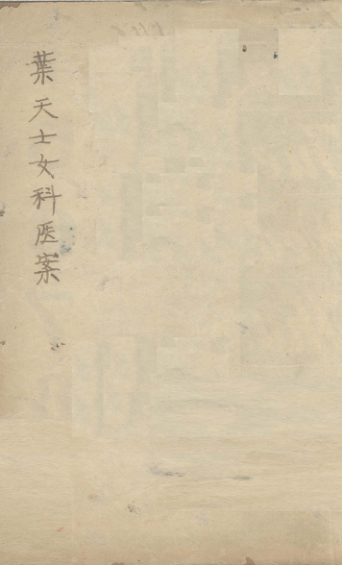 葉天士女科医案